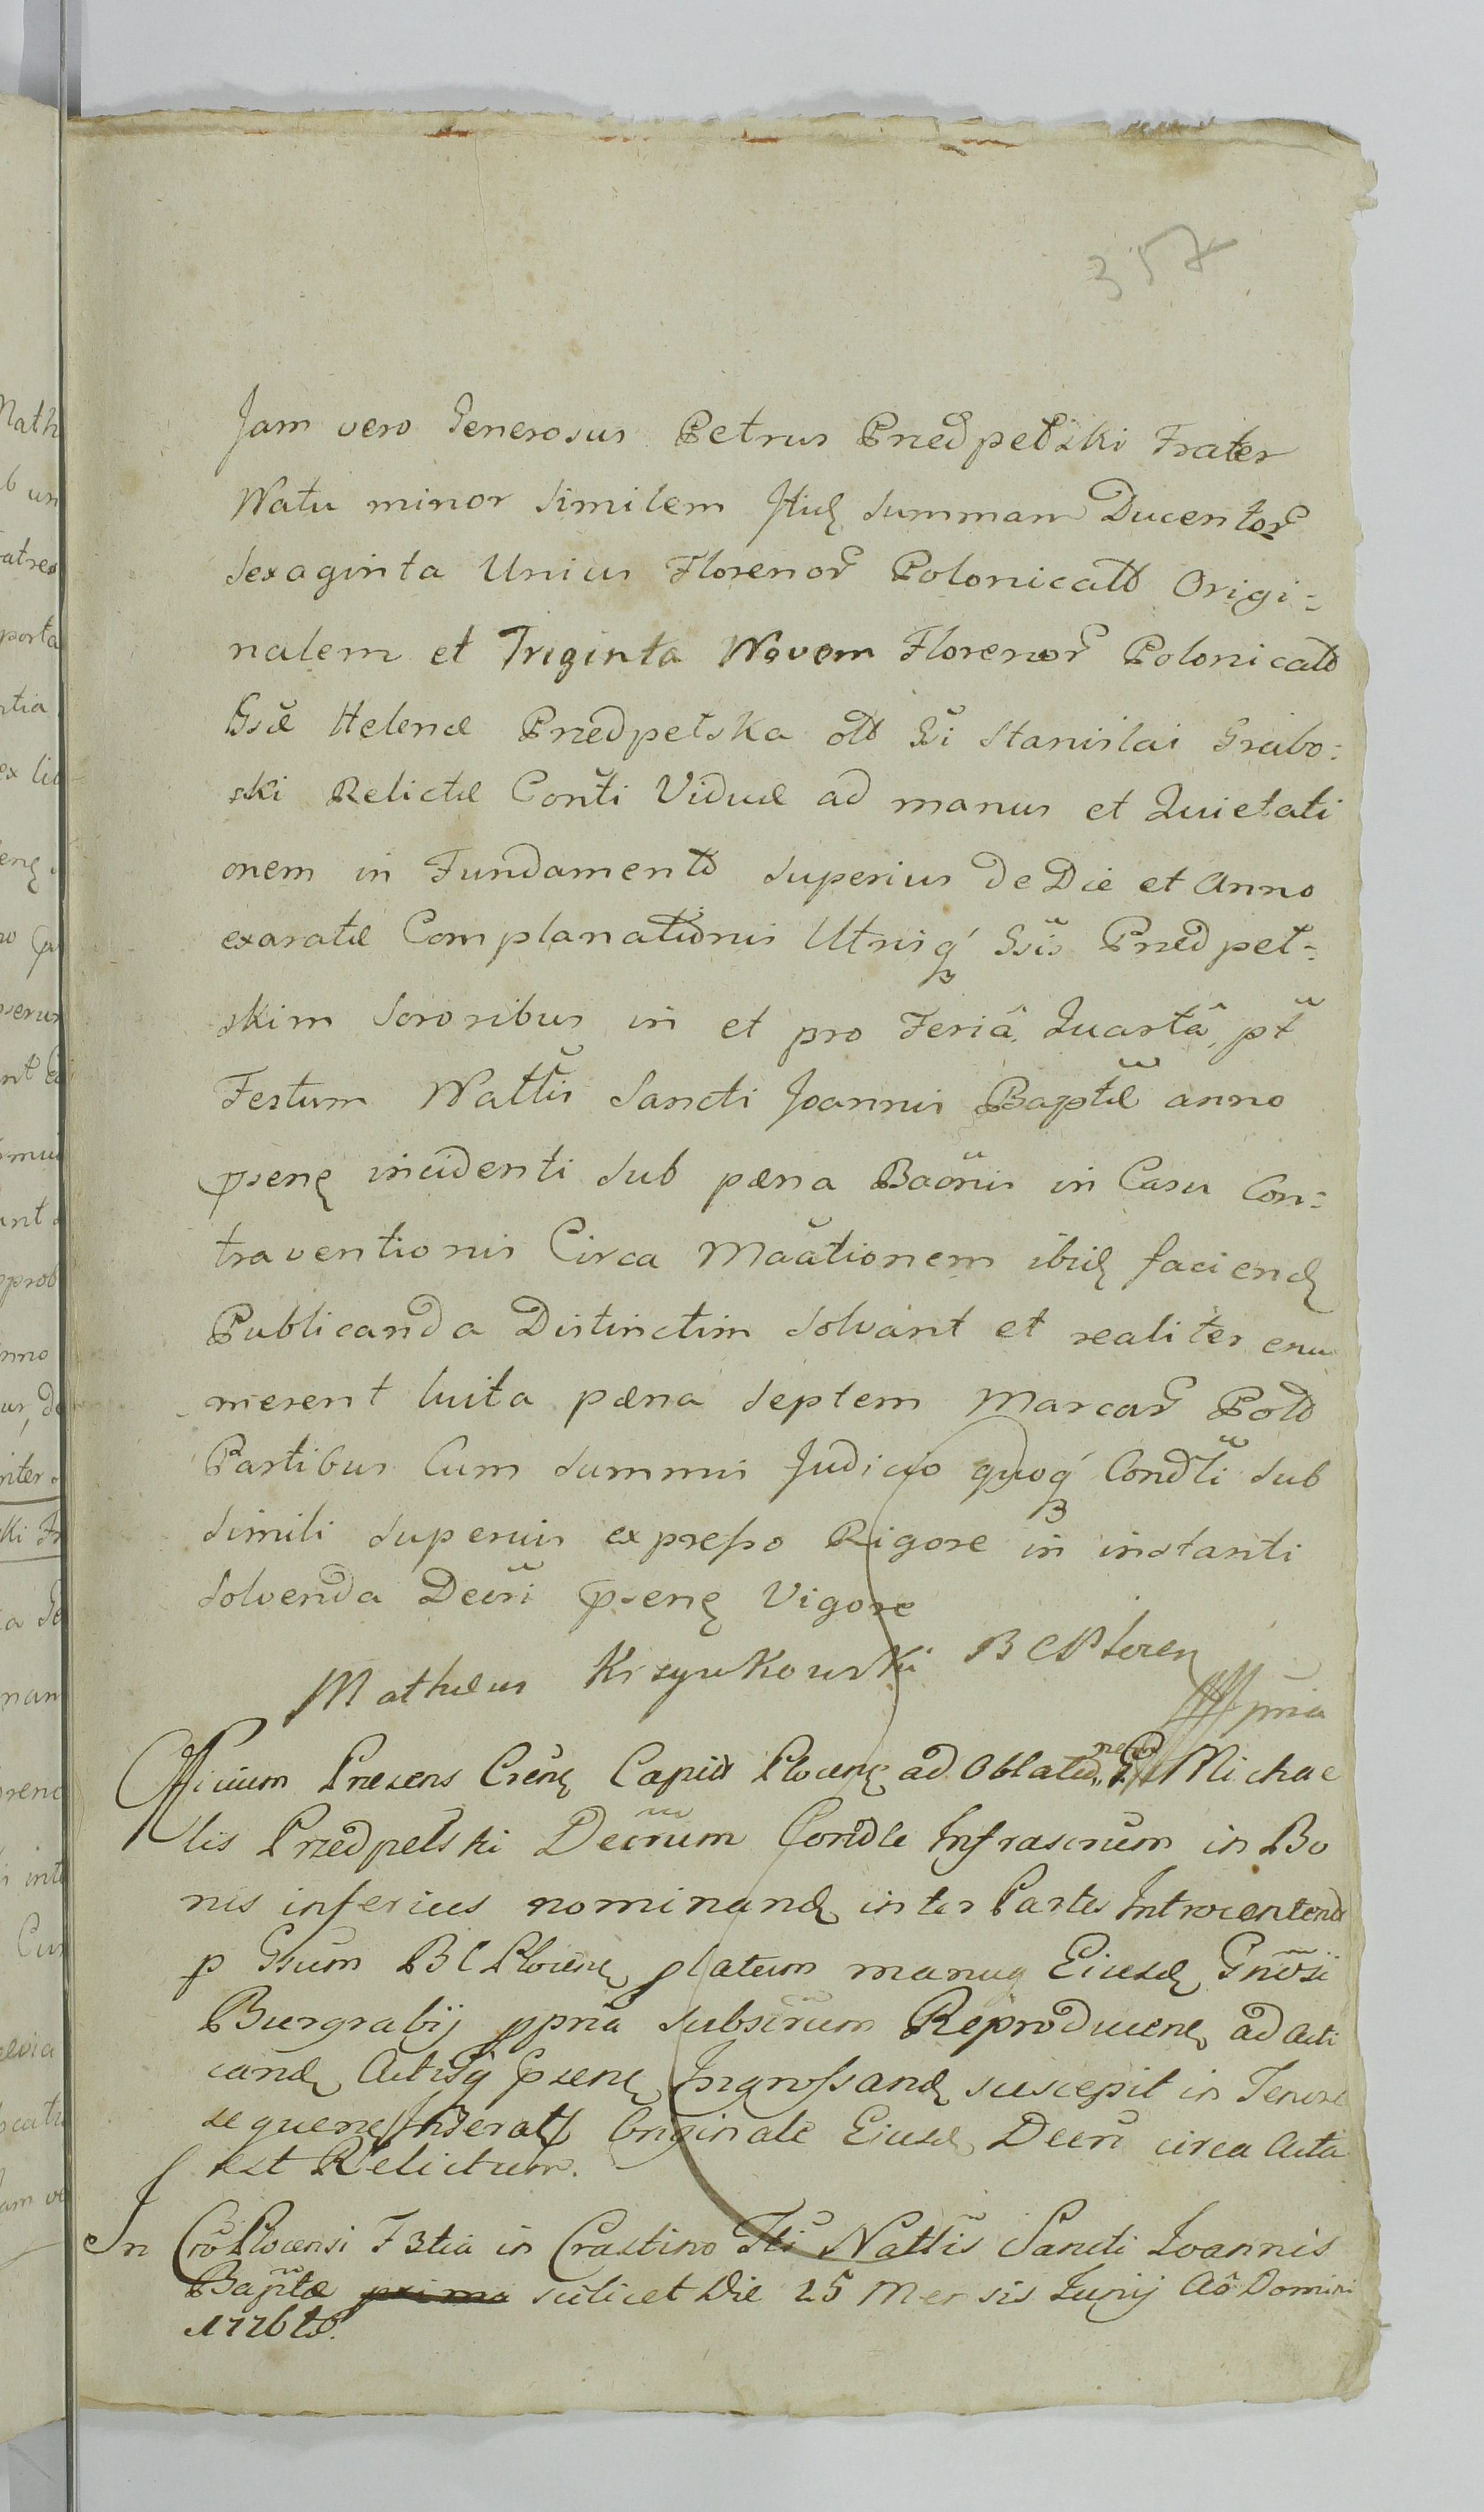 357
Jam vero Generosus Petrus Przedpełski Frater
Natu minor similem Itid summam Ducentor
sexaginta Unius Florenor Polonicalo Origi=
nalem et Triginta Novem Florenor Polonical
Gsæ Helenæ Przedpełska ol Gsi Stanislai Grabo=
ski Relictæ Conti Viduæ ad manus et Quietati
onem in Fundamento superius de Die et Anno
exaratæ Complanationis Utrisq Gsis Przedpeł=
skim Sororibus in et pro Feriâ Quartâ pt
Festum Nattis Sancti Joannis Baptæ anno
psen incidenti sub pæna Baonis in Casu Con=
traventionis Circa Maationem ibid faciend
Publicanda Distinctim solvant et realiter enu
merent luita pæna septem Marcar Pol
Partibus Cum summis Judicio quoq Condli sub
simili superius expresso Rigore in instanti
solvenda Decri psen Vigore
Mathæus Krzywkowski B C Plocen
mpria
Officium Præsens Crens Capit Plocens ad Oblatio Michae
lis Przedpełski Decrum Condle Infrascrum in Bo
nis inferius nominand inter Partes Introcontent
p Gsum B C Plocens platum manuq Eiusd Gnosi
Burgrabij ppria subscrum Reproducens ad Acti
cand Actisq psens Ingrossand suscepit in Tenore
sequens Originale Eiusd Decri circa Acta
est Relictum.
In Cro Plocensi F 3tia in Crastino Fti Nattis Sancti Ioannis
Baptæ scilicet Die 25 Mensis Junij Ao Domini
1776to.